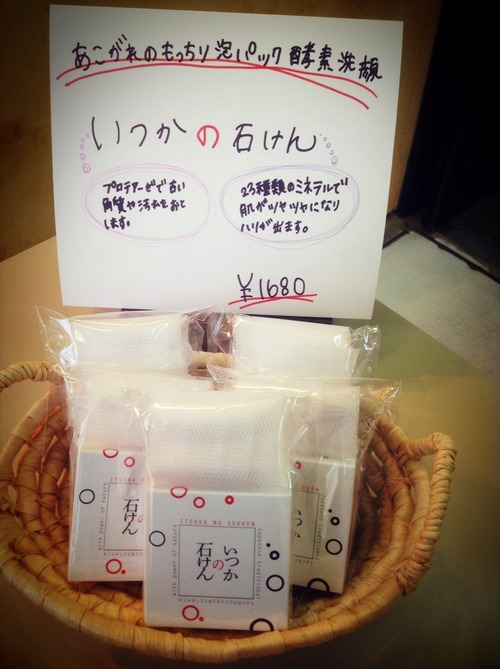 あこがれのもっちり泡パック酵素洗顔
いつかの石けん
プロテアーゼで古い
角質や汚れをおと
します。
23種類のミネラルで
肌がツヤツヤになり
ハリが出ます。
¥1680
ITSUKA NO SEKKEN
Japanese traditional
with power of nature
いつか
の
石けん